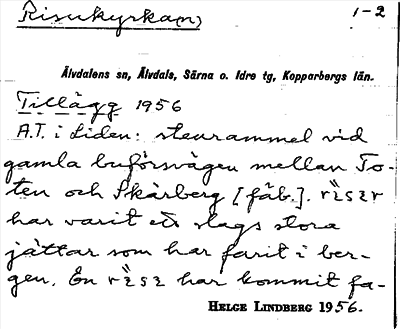 Risukyrka(n) 1-2
Älvdalens sn, Älvdals, Särna o. Idre tg, Kopparbergs län.
Tillägg 1956
A.T. i Liden: stenrammel vid
gamla buförsvägen mellan To-
ten och Skärberg [fäb.]. rìser
har varit ett slags stora
jättar som har farit i ber-
gen. En rìse har kommit fa-
HELGE LINDBERG 1956.